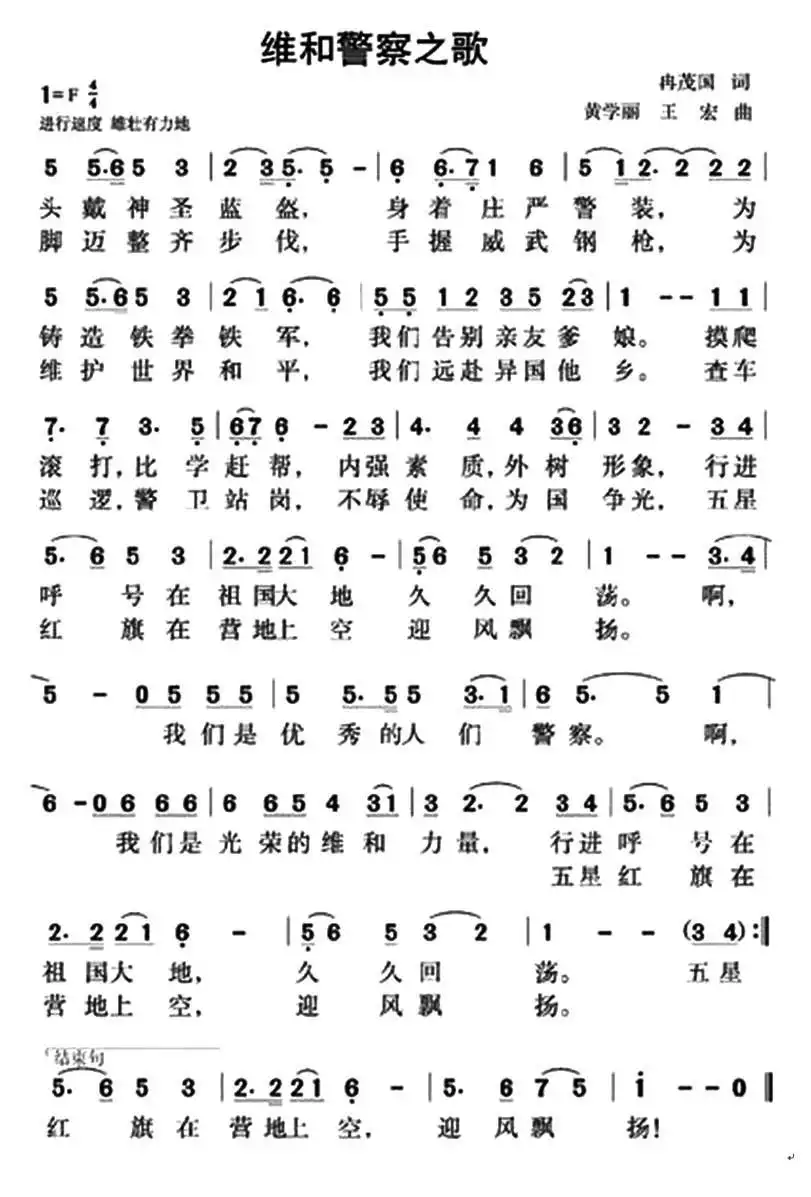 维和警察之歌
1=F 4/4
冉茂国 词
进行速度 雄壮有力地
黄学丽 王 宏 曲
5 5·6 5 3 | 2 2 3 5· 5 - | 6 6·7 1 6 | 5 1 2· 2 2 2 |
头戴神圣蓝盔， 身着庄严警装，为
脚迈整齐步伐， 手握威武钢枪，为
5 5·6 5 3 | 2 2 1 6· 6 | 5 5 1 2 3 5 2 3 | 1 - - 1 1 |
铸造铁拳铁军， 我们告别亲友爹娘。摸爬
维护世界和平， 我们远赴异国他乡。查车
7· 7 3· 5 | 6 7 6 - 2 3 | 4· 4 4 3 6 | 3 2 - 3 4 |
滚打，比学赶帮，内强素质，外树形象，行进
巡逻，警卫站岗，不辱使命，为国争光，五星
5· 6 5 3 | 2· 2 2 2 1 6 - | 5 6 5 3 2 | 1 - - 3·4 |
呼号在祖国大地久久回荡。啊，
红旗在营地上空迎风飘扬。
5 - 0 5 5 5 | 5 5· 5 5 3·1 | 6 5· 5 1 |
我们是优秀的人们警察。啊，
6 - 0 6 6 6 | 6 6 5 4 3 1 | 3 2· 2 3 4 | 5· 6 5 3 |
我们是光荣的维和力量，行进呼号在
五星红旗在
2· 2 2 2 1 6 - | 5 6 5 3 2 | 1 - - (3 4) :‖
祖国大地，久久回荡。五星
营地上空，迎风飘扬。
结束句
5· 6 5 3 | 2· 2 2 2 1 6 - | 5· 6 7 5 | 1 - - 0 ‖
红旗在营地上空，迎风飘扬！